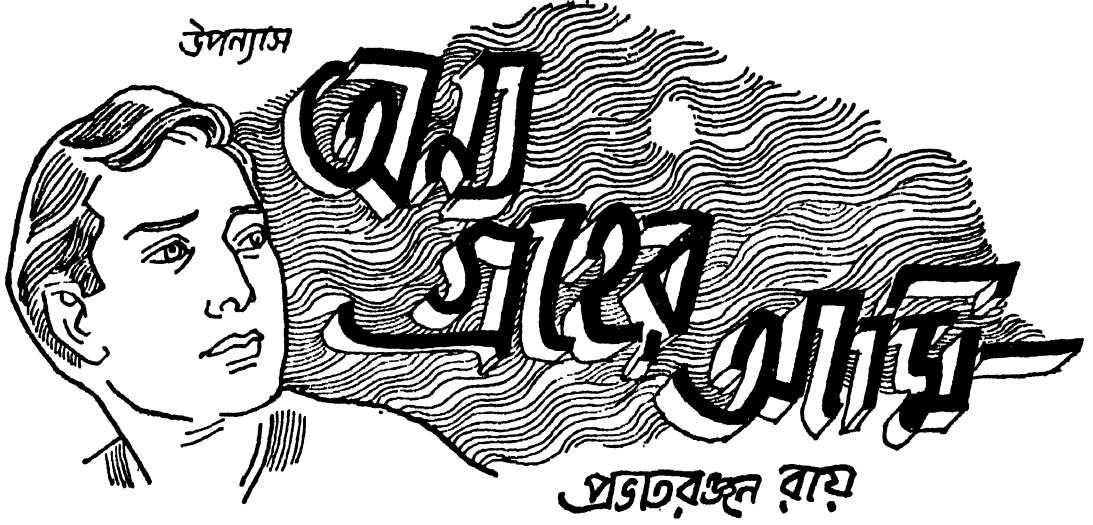 উপন্যাস
অন্য
গ্রহের
আমি—
প্রভাতরঞ্জন রায়